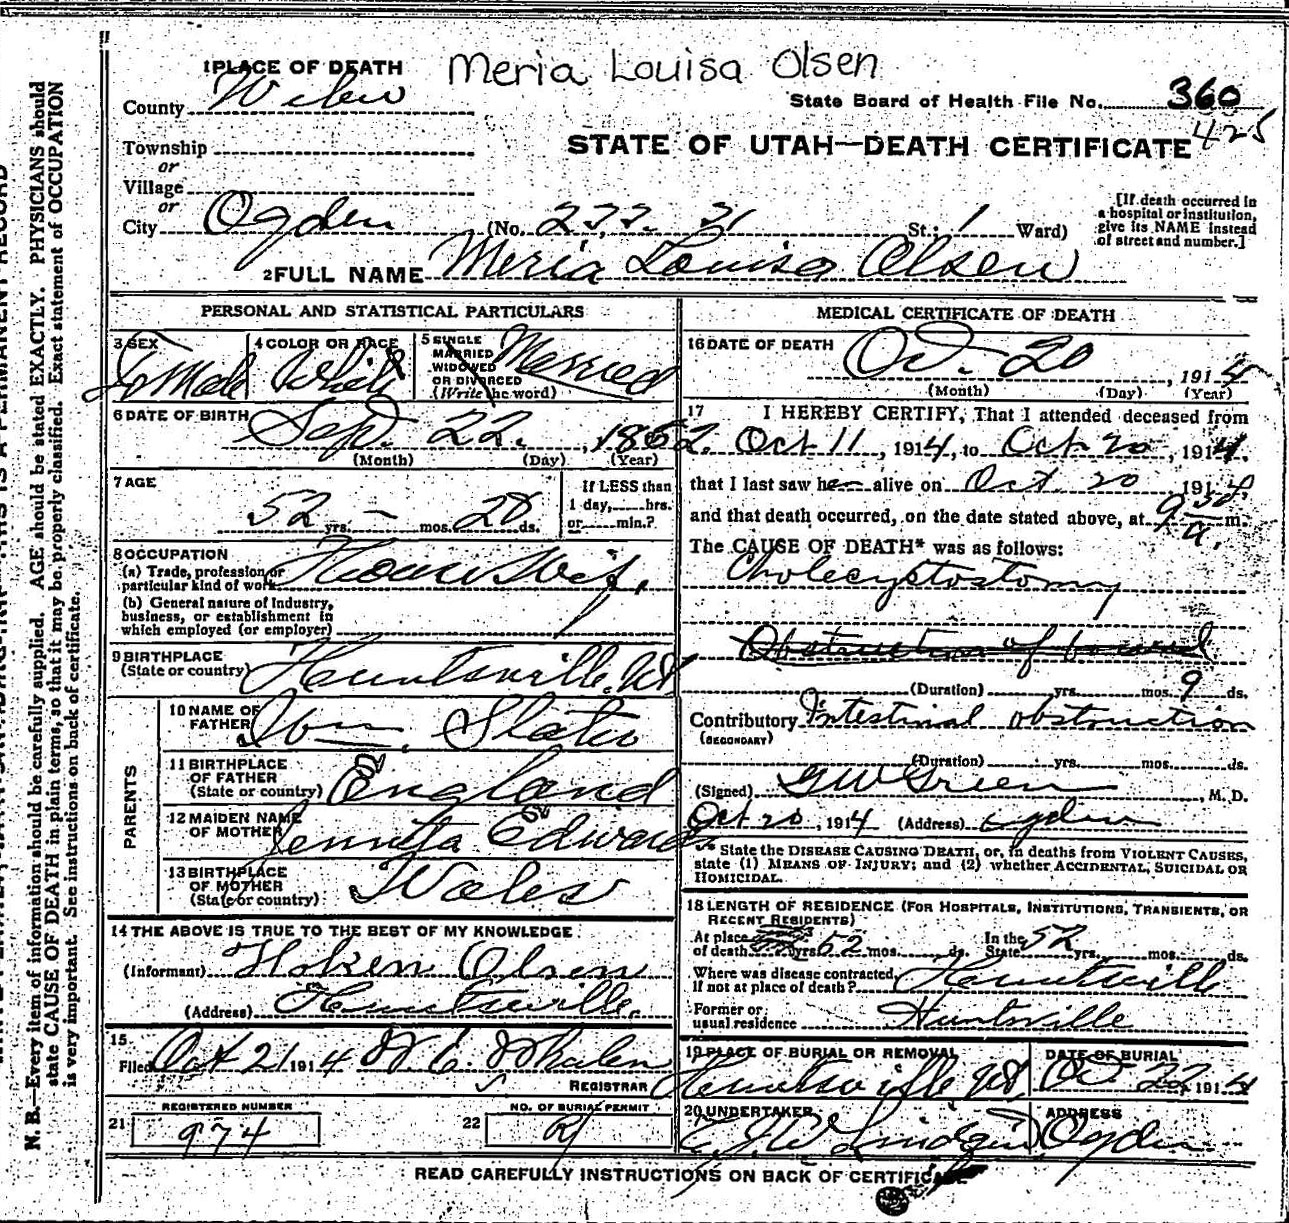 Meria Louisa Olsen
1 PLACE OF DEATH
County Weber
State Board of Health File No. 360
425
STATE OF UTAH—DEATH CERTIFICATE
Township
or
Village
or
City Ogden (No. 31 St.; 1 Ward)
[If death occurred in a hospital or institution, give its NAME instead of street and number.]
2 FULL NAME Meria Louisa Olsen
PERSONAL AND STATISTICAL PARTICULARS
3 SEX Female
4 COLOR OR RACE White
5 SINGLE MARRIED WIDOWED OR DIVORCED (Write the word) Married
6 DATE OF BIRTH Sep. 22, 1862.
(Month) (Day) (Year)
7 AGE
52 yrs. — mos. 28 ds.
If LESS than 1 day, hrs. or min.?
8 OCCUPATION
(a) Trade, profession or particular kind of work House Wife
(b) General nature of Industry, business, or establishment in which employed (or employer)
9 BIRTHPLACE (State or country) Huntsville, Ut
PARENTS
10 NAME OF FATHER Wm. Slater
11 BIRTHPLACE OF FATHER (State or country) England
12 MAIDEN NAME OF MOTHER Edwards
13 BIRTHPLACE OF MOTHER (State or country) Wales
14 THE ABOVE IS TRUE TO THE BEST OF MY KNOWLEDGE
(Informant) Hoken Olsen
(Address) Huntsville.
15
Filed Oct 21 1914 W. E. Whalen
REGISTRAR
21 REGISTERED NUMBER 974
22 NO. OF BURIAL PERMIT
MEDICAL CERTIFICATE OF DEATH
16 DATE OF DEATH Oct. 20, 1914
(Month) (Day) (Year)
17 I HEREBY CERTIFY, That I attended deceased from
Oct 11, 1914, to Oct 20, 1914.
that I last saw her alive on Oct. 20 1914,
and that death occurred, on the date stated above, at 9 30 a. m.
The CAUSE OF DEATH* was as follows:
Cholecystostomy
Obstruction of bowel
(Duration) yrs. mos. 9 ds.
Contributory Intestinal obstruction
(SECONDARY)
(Duration) yrs. mos. ds.
(Signed) G W Green, M. D.
Oct 20, 1914 (Address) Ogden
* State the DISEASE CAUSING DEATH, or, in deaths from VIOLENT CAUSES, state (1) MEANS OF INJURY; and (2) whether ACCIDENTAL, SUICIDAL OR HOMICIDAL.
18 LENGTH OF RESIDENCE (FOR HOSPITALS, INSTITUTIONS, TRANSIENTS, OR RECENT RESIDENTS)
At place of death yrs. 52 mos. ds. In the State 52 yrs. mos. ds.
Where was disease contracted, If not at place of death? Huntsville
Former or usual residence Huntsville
19 PLACE OF BURIAL OR REMOVAL Huntsville Ut
DATE OF BURIAL Oct. 22, 1914
20 UNDERTAKER
ADDRESS Ogden
READ CAREFULLY INSTRUCTIONS ON BACK OF CERTIFICATE
N. B.—Every item of information should be carefully supplied. AGE should be stated EXACTLY. PHYSICIANS should
state CAUSE OF DEATH in plain terms, so that it may be properly classified. Exact statement of OCCUPATION
is very important. See instructions on back of certificate.